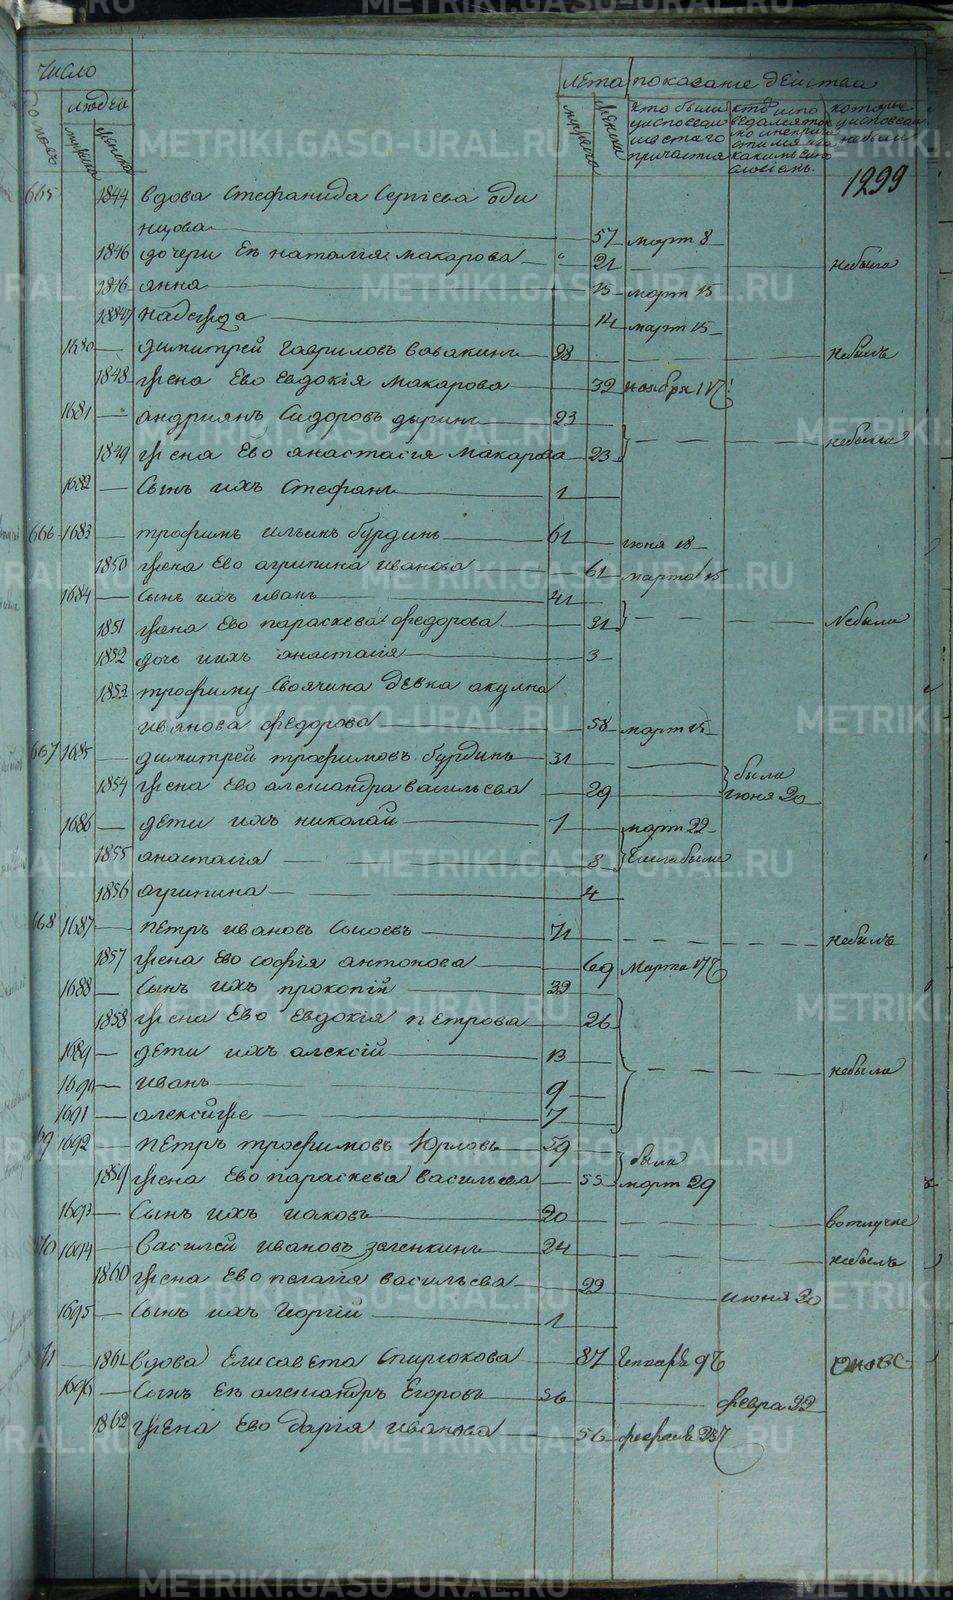 число
людей
мужска
женска
лета
мужеска
женска
показание действа
кто были
у исповеди
и святаго
причастия
которые
у исповеди
небыли
1299
665 1844 вдова Стефанида Сергiева оди
нцова 57 март 8
1846 дочери Ея наталiя макарова 21 небыла
1846 анна 15 март 15
1847 надежда 14 март 15
1680 димитрей гавриловъ вавакинъ 28 небылъ
1848 жена Ево Евдокiя макарова 32 ноября 17
1681 андриянъ Сидоровъ дыринъ 23
1849 жена Ево анастасiя макарова 23 небыли
1682 Сынъ ихъ Стефанъ 1
666 1683 трофимъ ильинъ бурдинъ 61 июня 18
1850 жена Ево агрипина иванова 61 марта 15
1684 Сынъ ихъ иванъ 41
1851 жена Ево параскева федорова 31 Небыли
1852 дочь ихъ анастасiя 3
1853 трофиму Своячина девка акулина
иванова федорова 58 март 15
667 1685 димитрей трофимовъ бурдинъ 31
1854 жена Ево александра васильева 29 были
июня 20
1686 дети ихъ николай 7 март 22
1855 анастасiя 8 были
1856 агрипина 4
668 1687 петръ ивановъ Сысоевъ 71 небылъ
1857 жена Ево софiя антонова 69 Марта 17
1688 Сынъ ихъ прокопiй 32
1858 жена Ево Евдокiя петрова 26
1689 дети ихъ алексiй 13 небыли
1690 иванъ 9
1691 алексiй же 7
69 1692 петръ трофимовъ Юрловъ 59 были
1859 жена Ево параскева васильева 55 март 29
1693 Сынъ ихъ иаковъ 20 вотлучке
70 1694 Василей ивановъ зеленкинъ 24 небылъ
1860 жена Ево пелагiя васильева 22 июня 20
1695 Сынъ ихъ георгiй 1
71 1861 вдова Елисавета Спирюкова 87
1696 Сынъ Ея александръ Егоровъ 56 февра 22
1862 жена Ево дарiя иванова 56
METRIKI.GASO-URAL.RU